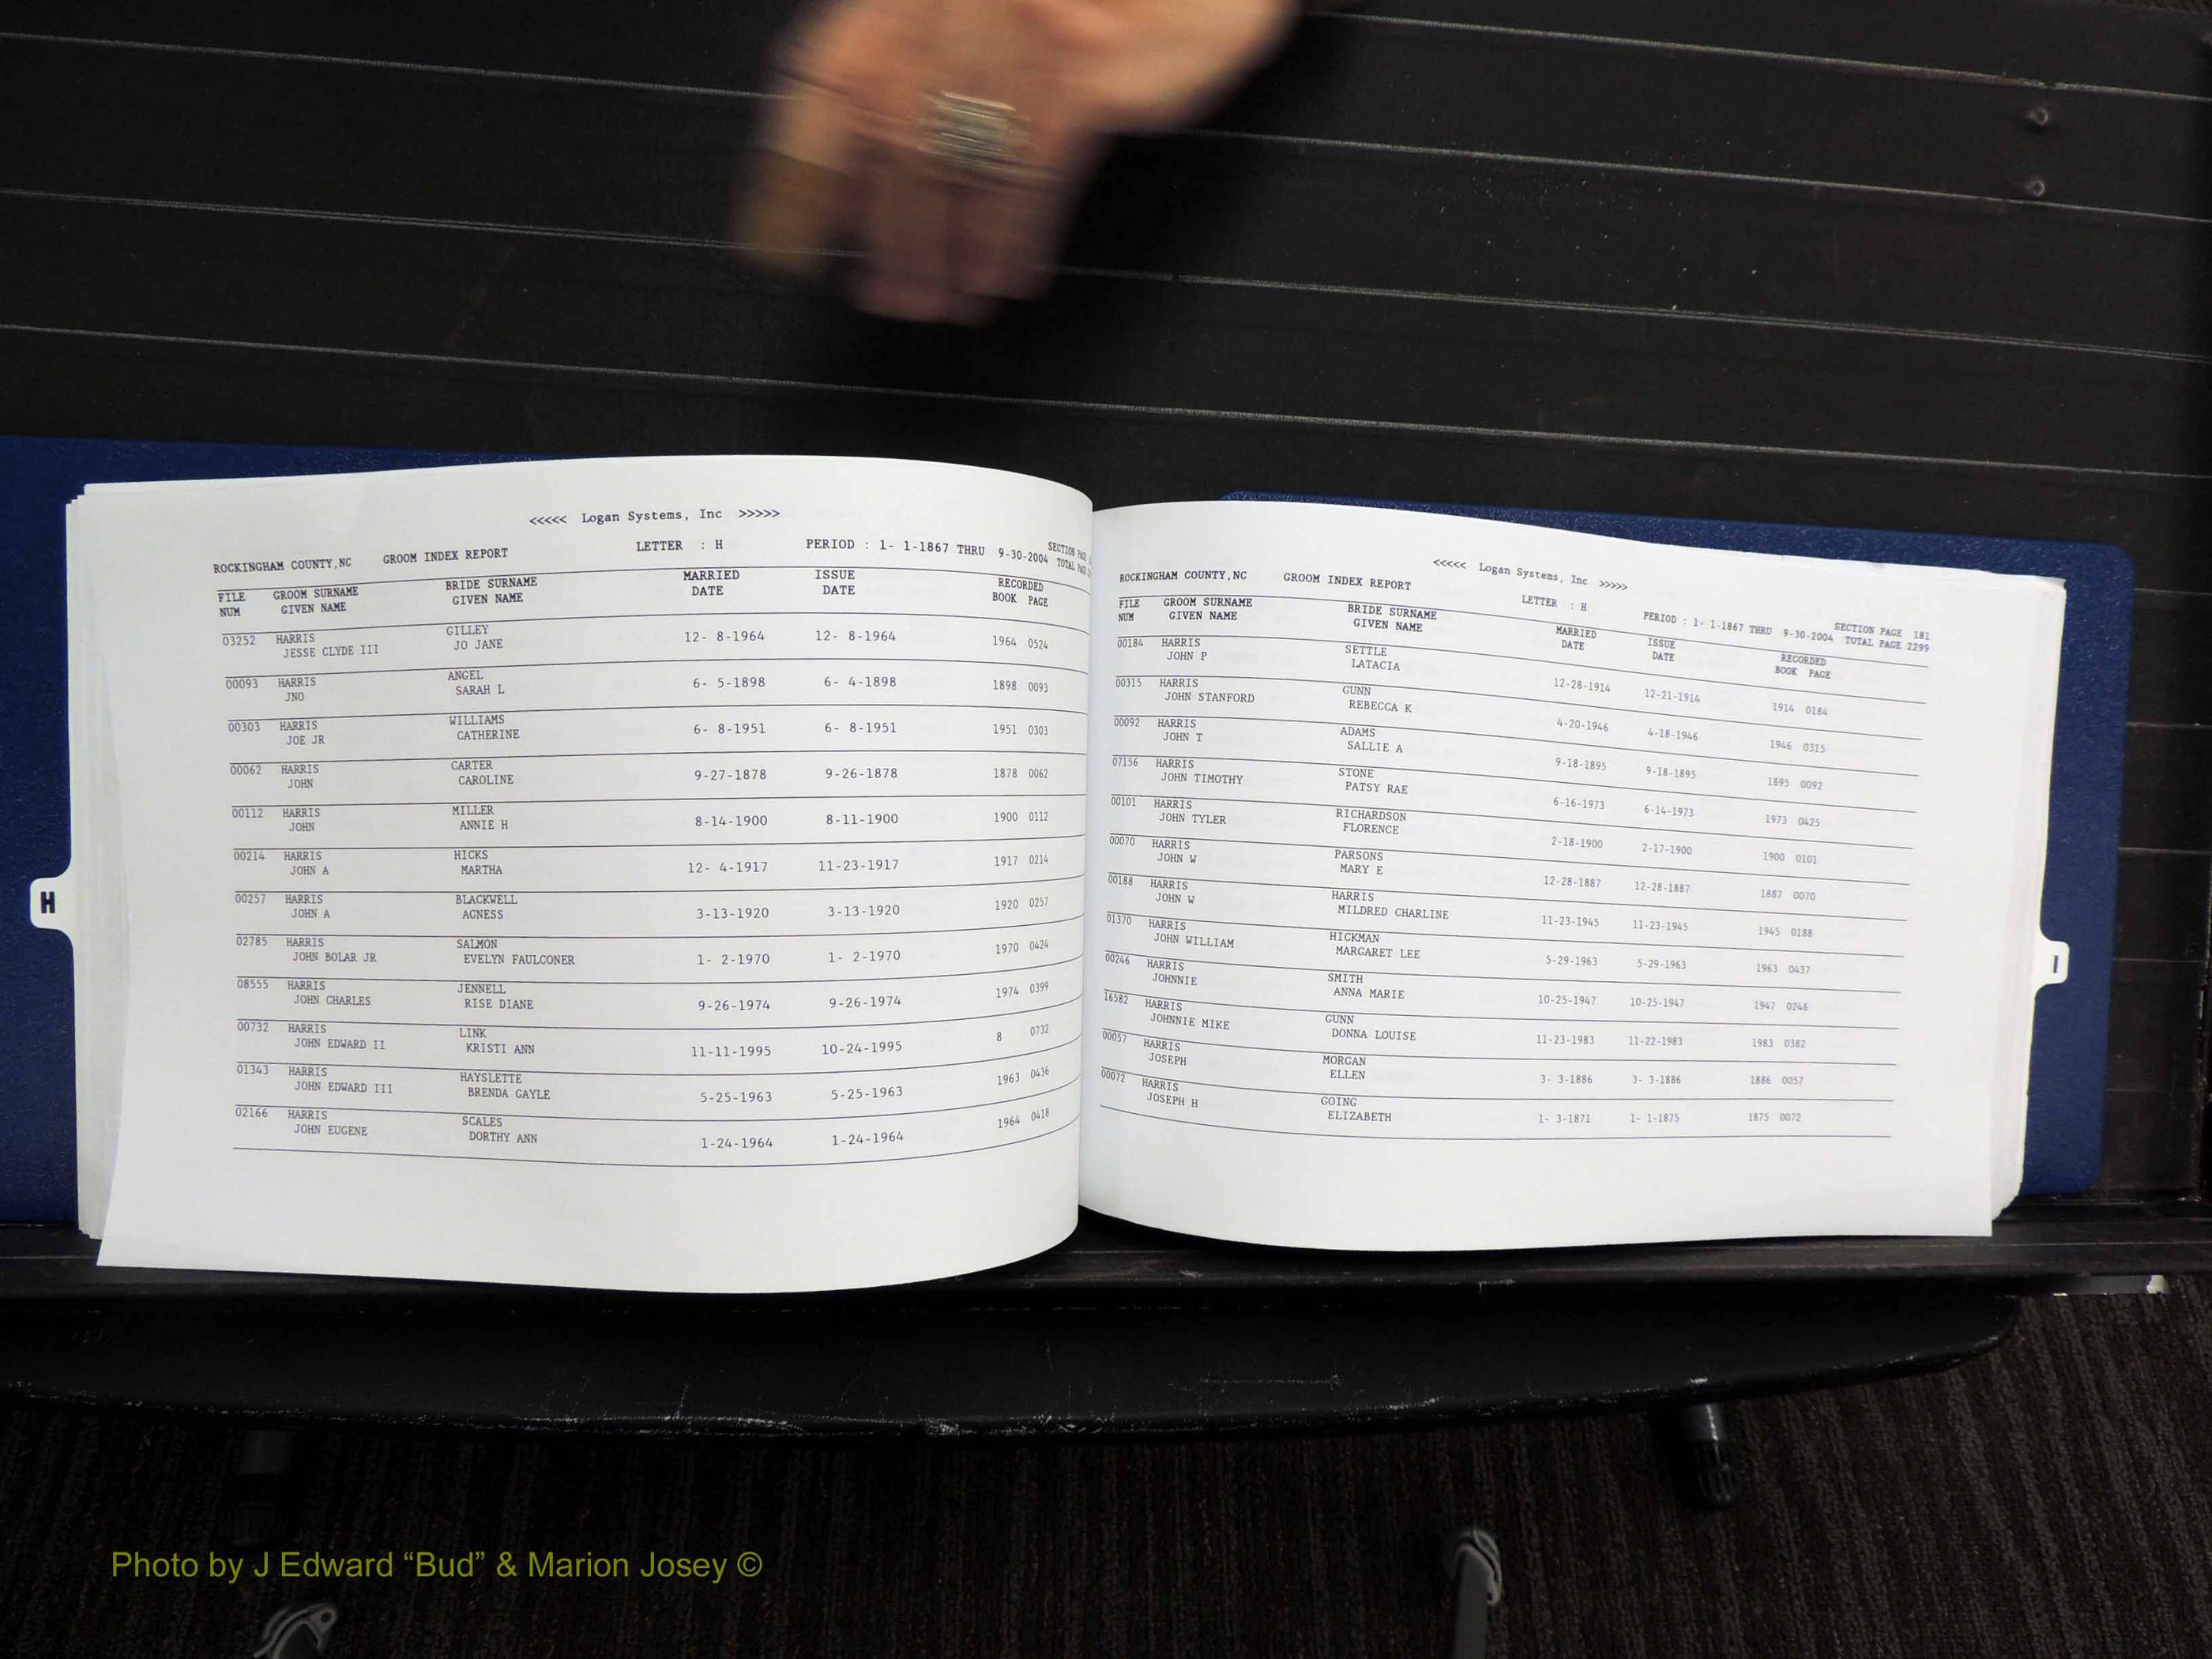 <<<<< Logan Systems, Inc >>>>>
ROCKINGHAM COUNTY,NC GROOM INDEX REPORT LETTER : H PERIOD : 1- 1-1867 THRU 9-30-2004 SECTION
TOTAL
FILE GROOM SURNAME BRIDE SURNAME MARRIED ISSUE RECORDED
NUM GIVEN NAME GIVEN NAME DATE DATE BOOK PAGE
03252 HARRIS GILLEY 12- 8-1964 12- 8-1964 1964 0524
JESSE CLYDE III JO JANE
00093 HARRIS ANGEL 6- 5-1898 6- 4-1898 1898 0093
JNO SARAH L
00303 HARRIS WILLIAMS 6- 8-1951 6- 8-1951 1951 0303
JOE JR CATHERINE
00062 HARRIS CARTER 9-27-1878 9-26-1878 1878 0062
JOHN CAROLINE
00112 HARRIS MILLER 8-14-1900 8-11-1900 1900 0112
JOHN ANNIE H
00214 HARRIS HICKS 12- 4-1917 11-23-1917 1917 0214
JOHN A MARTHA
00257 HARRIS BLACKWELL 3-13-1920 3-13-1920 1920 0257
JOHN A AGNESS
02785 HARRIS SALMON 1- 2-1970 1- 2-1970 1970 0424
JOHN BOLAR JR EVELYN FAULCONER
08555 HARRIS JENNELL 9-26-1974 9-26-1974 1974 0399
JOHN CHARLES RISE DIANE
00732 HARRIS LINK 11-11-1995 10-24-1995 8 0732
JOHN EDWARD II KRISTI ANN
01343 HARRIS HAYSLETTE 5-25-1963 5-25-1963 1963 0436
JOHN EDWARD III BRENDA GAYLE
02166 HARRIS SCALES 1-24-1964 1-24-1964 1964 0418
JOHN EUGENE DORTHY ANN
H
<<<<< Logan Systems, Inc >>>>>
ROCKINGHAM COUNTY,NC GROOM INDEX REPORT LETTER : H PERIOD : 1- 1-1867 THRU 9-30-2004 SECTION PAGE 181
TOTAL PAGE 2299
FILE GROOM SURNAME BRIDE SURNAME MARRIED ISSUE RECORDED
NUM GIVEN NAME GIVEN NAME DATE DATE BOOK PAGE
00184 HARRIS SETTLE 12-28-1914 12-21-1914 1914 0184
JOHN P LATACIA
00315 HARRIS GUNN 4-20-1946 4-18-1946 1946 0315
JOHN STANFORD REBECCA K
00092 HARRIS ADAMS 9-18-1895 9-18-1895 1895 0092
JOHN T SALLIE A
07156 HARRIS STONE 6-16-1973 6-14-1973 1973 0425
JOHN TIMOTHY PATSY RAE
00101 HARRIS RICHARDSON 2-18-1900 2-17-1900 1900 0101
JOHN TYLER FLORENCE
00070 HARRIS PARSONS 12-28-1887 12-28-1887 1887 0070
JOHN W MARY E
00188 HARRIS HARRIS 11-23-1945 11-23-1945 1945 0188
JOHN W MILDRED CHARLINE
01370 HARRIS HICKMAN 5-29-1963 5-29-1963 1963 0437
JOHN WILLIAM MARGARET LEE
00246 HARRIS SMITH 10-25-1947 10-25-1947 1947 0246
JOHNNIE ANNA MARIE
16582 HARRIS GUNN 11-23-1983 11-22-1983 1983 0382
JOHNNIE MIKE DONNA LOUISE
00057 HARRIS MORGAN 3- 3-1886 3- 3-1886 1886 0057
JOSEPH ELLEN
00072 HARRIS GOING 1- 3-1871 1- 1-1875 1875 0072
JOSEPH H ELIZABETH
I
Photo by J Edward “Bud” & Marion Josey ©